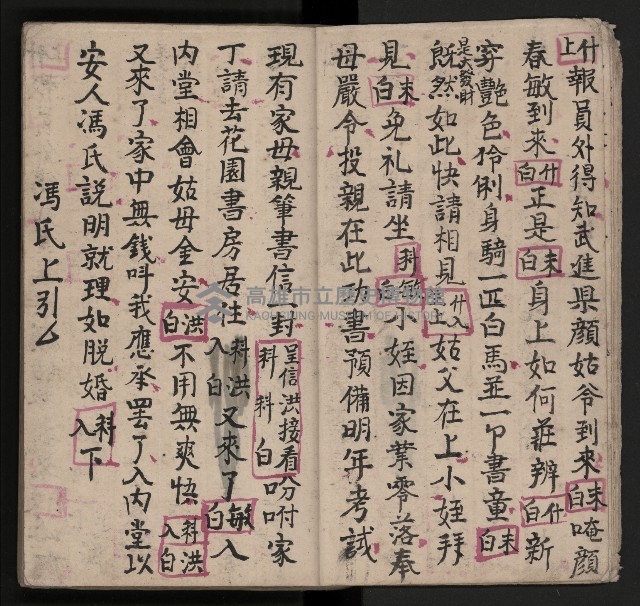 什上報員外得知武進県顔姑爷到來末白唵顔
春敏到來什白正是末白身上如何莊辨什白新
穿艷色伶俐身騎一匹白馬並一卩書童末白
是大發財
既然如此快請相見什入上姑父在上小姪拜
見末白免礼請坐科敏白小姪因家業零落奉
母嚴令投親在此功書預備明年考試
現有家母親筆書信一封呈信洪接看科科白吩咐家
丁請去花園書房居住科入洪白又來了敏白入
内堂相會姑母金安洪白不用無爽快科入洪白
又來了家中無錢呌我應承罷了入内堂以
安人馮氏説明就理如脱婚科入下
馮氏上引厶
高雄市立歷史博物館
KAOHSIUNG MUSEUM OF HISTORY